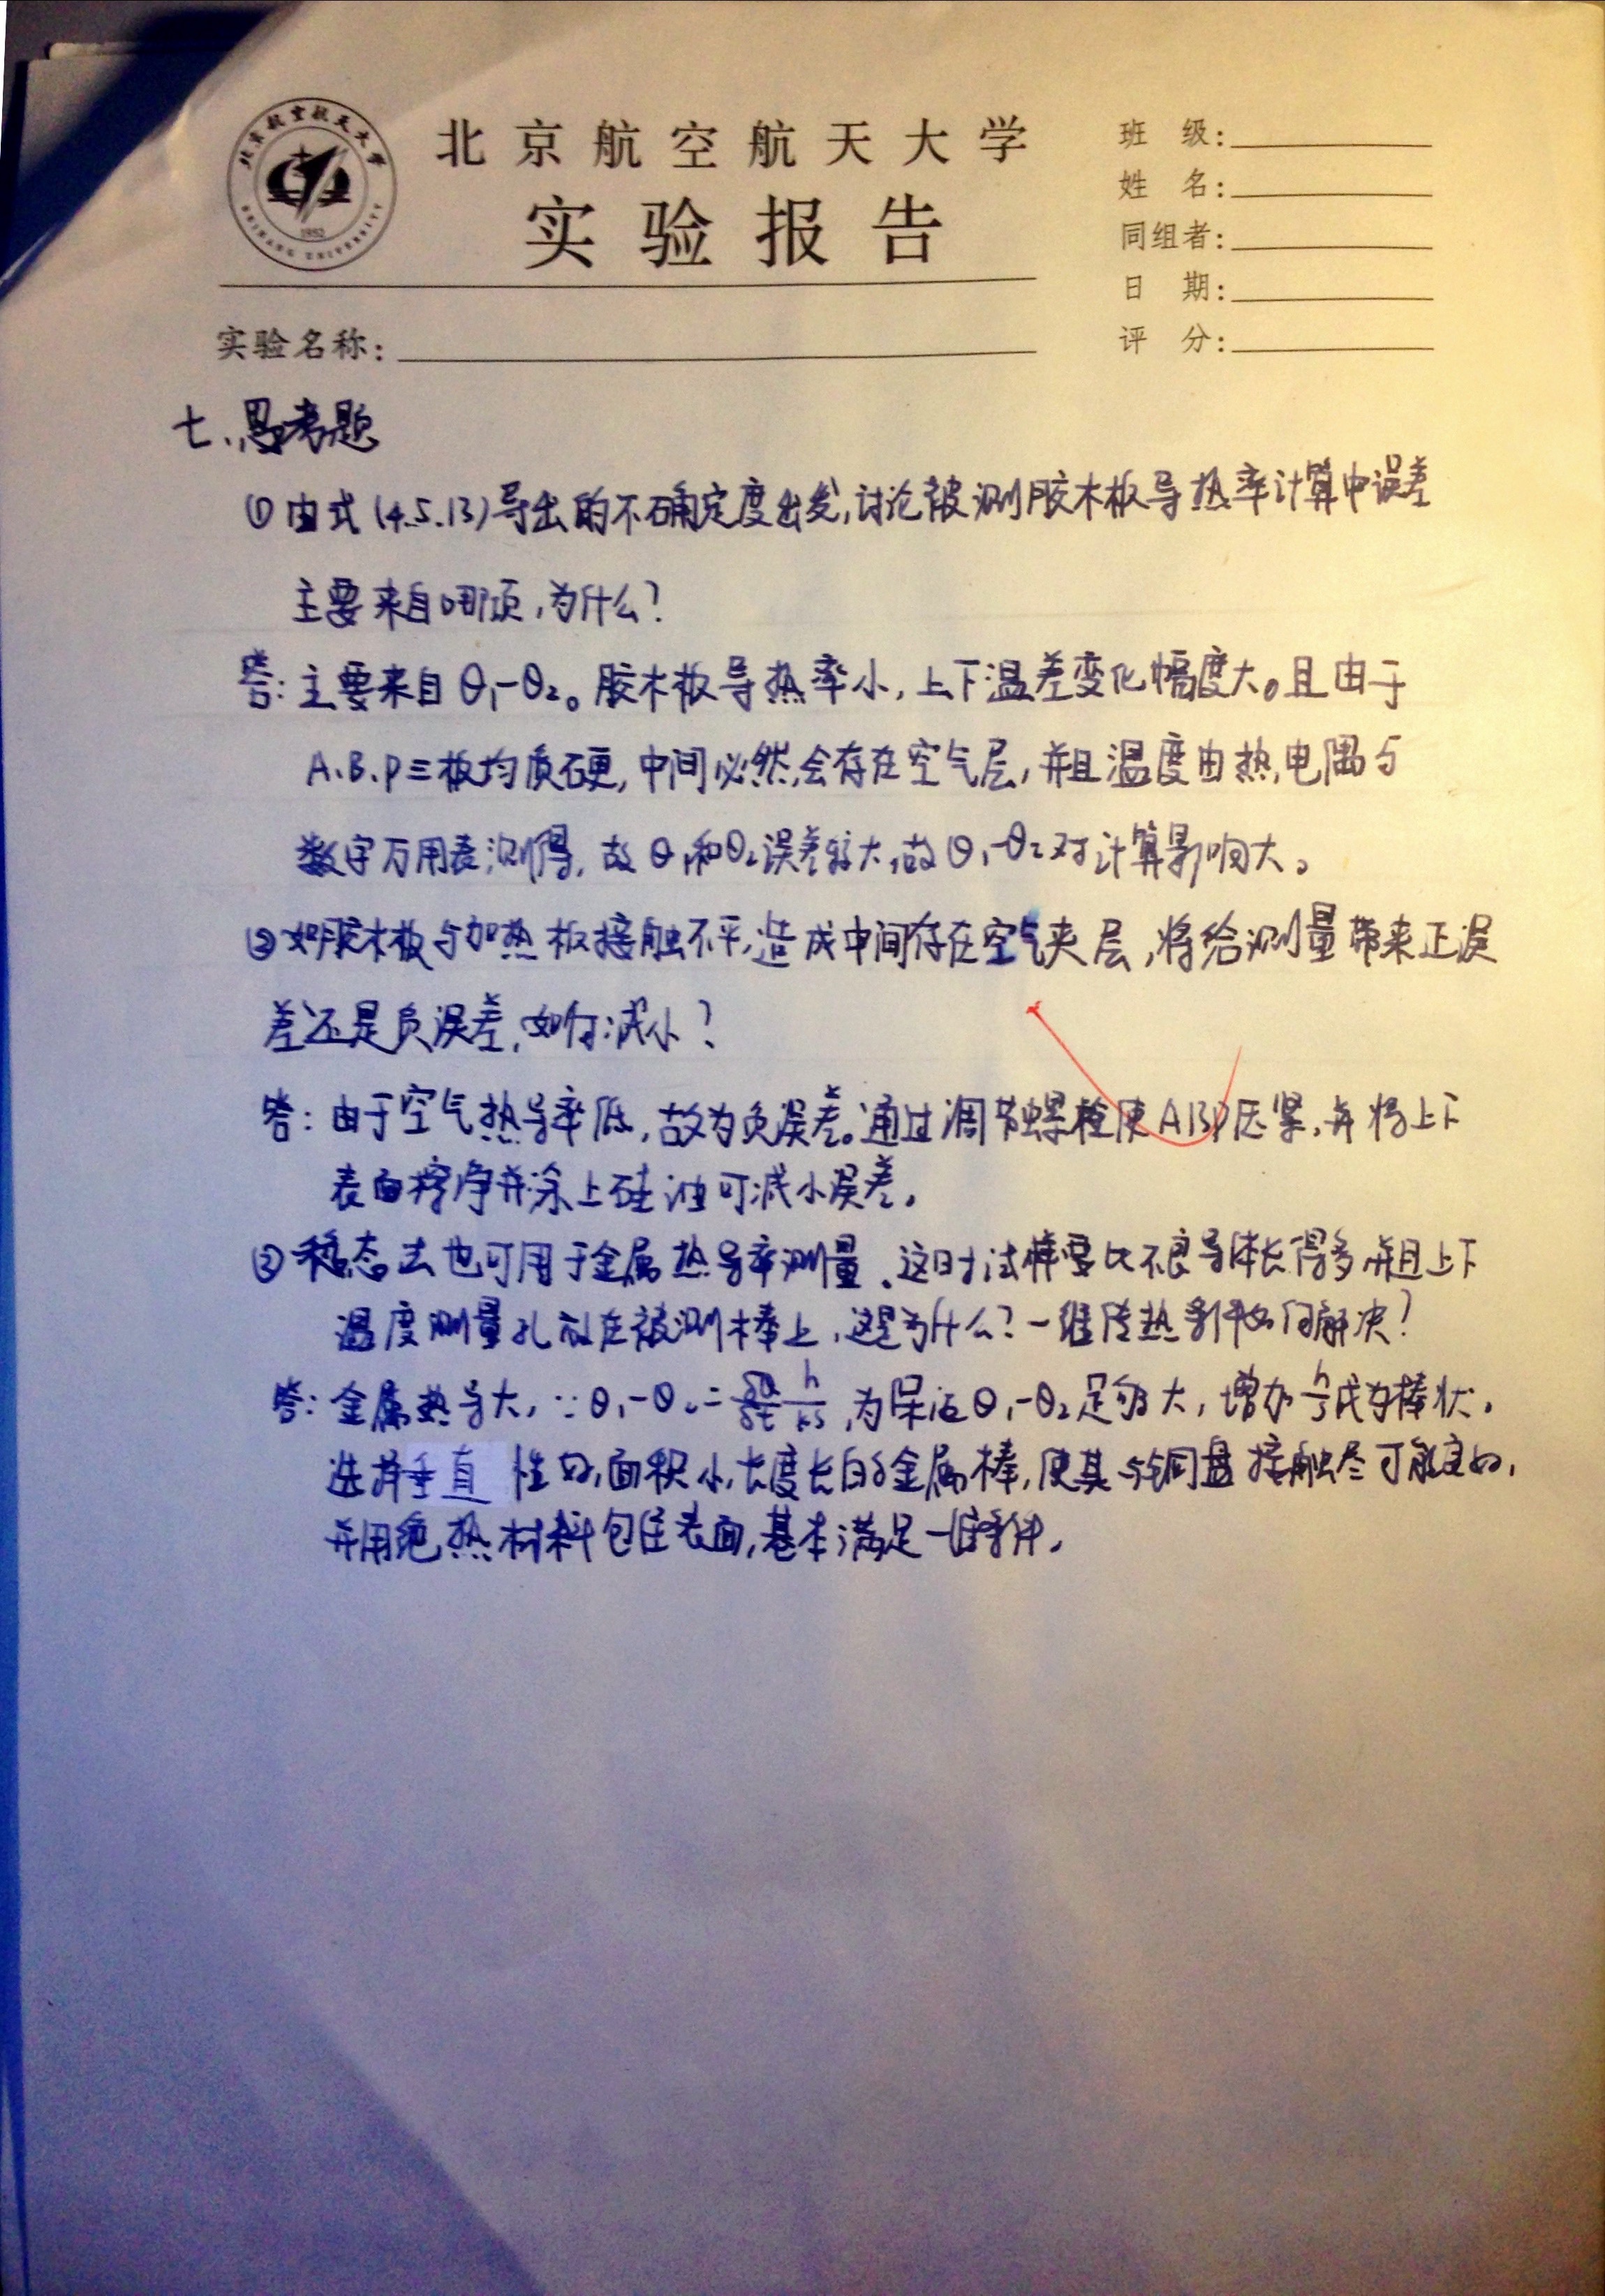 北京航空航天大学
BEIHANG UNIVERSITY
1952
北京航空航天大学
实验报告
班 级:
姓 名:
同组者:
日 期:
评 分:
实验名称:
七、思考题
① 由式(4.5.13)导出的不确定度出发,讨论被测胶木板导热率计算中误差
主要来自哪项,为什么?
答:主要来自θ₁-θ₂。胶木板导热率小,上下温差变化幅度大。且由于
A、B、P三板均质硬,中间必然会存在空气层,并且温度由热电偶与
数字万用表测得,故θ₁和θ₂误差较大,故θ₁-θ₂对计算影响大。
② 如胶木板与加热板接触不平,造成中间存在空气夹层,将给测量带来正误
差还是负误差,如何减小?
答:由于空气热导率低,故为负误差。通过调节螺栓使ABP压紧,并将上下
表面擦净并涂上硅油可减小误差。
③ 稳态法也可用于金属热导率测量,这时试样要比不良导体长得多并且上下
温度测量孔放在被测棒上,这是为什么?一维传热条件如何解决?
答:金属热导大,∵θ₁-θ₂=δQ/δt h/ks,为保证θ₁-θ₂足够大,增加h/s成为棒状。
选择垂直性好,面积小,长度长的金属棒,使其与铜盘接触尽可能良好,
并用绝热材料包住表面,基本满足一维条件。